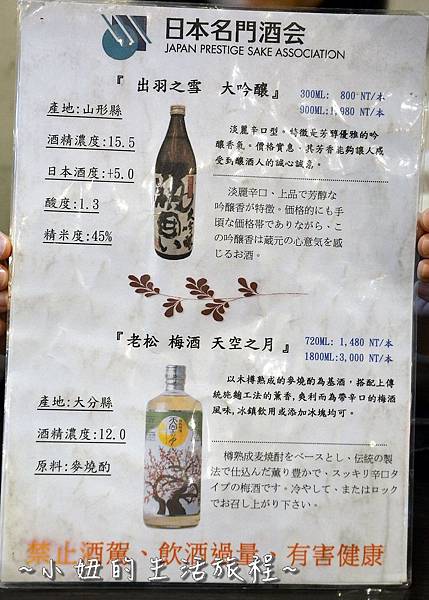 日本名門酒会
JAPAN PRESTIGE SAKE ASSOCIATION
『 出羽之雪 大吟釀』
300ML: 800 NT/本
900ML:1,980 NT/本
產地:山形縣
酒精濃度:15.5
日本酒度:+5.0
酸度:1.3
精米度:45%
淡麗辛口型。特徵是芳醇優雅的吟
釀香氣。價格實惠、其芳香能夠讓人感
受到釀酒人的誠心誠意。
淡麗辛口、上品で芳醇な
吟醸香が特徴。価格的にも手
頃な価格帯でありながら、こ
の吟醸香は蔵元の心意気を感
じるお酒。
『老松 梅酒 天空之月 』
720ML: 1,480 NT/本
1800ML:3,000 NT/本
產地:大分縣
酒精濃度:12.0
原料:麥燒酌
以木樽熟成的麥燒酌為基酒，搭配上傳
統施麴工法的薰香,爽利而為帶辛口的梅酒
風味,冰鎮飲用或添加冰塊均可。
樽熟成麦焼酎をベースとし、伝統の製
法で仕込んだ薫り豊かで、スッキリ辛口タ
イプの梅酒です。冷やして、またはロック
でお召し上がり下さい。
禁止酒駕、飲酒過量、有害健康
~小妞的生活旅程~